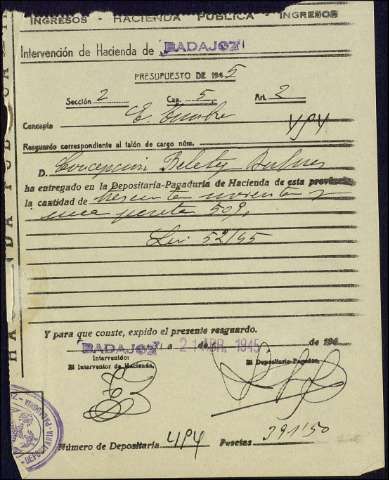 INGRESOS - HACIENDA PÚBLICA - INGRESOS
Intervención de Hacienda de BADAJOZ
PRESUPUESTO DE 1945
Sección 2 Cap. 5 Art. 3
Concepto E.
Resguardo correspondiente al talón de cargo núm. 484
D. Concepción
ha entregado en la Depositaría-Pagaduría de Hacienda de esta provincia
la cantidad de trescientas noventa y
una pesetas 50
52/45
Y para que conste, expido el presente resguardo.
BADAJOZ a 21 ABR. 1945 de 194
Intervención:
El Interventor de Hacienda, El Depositario-Pagador,
Número de Depositaría 484 Pesetas 391'50
DEPOSITARIA-PAGADURIA